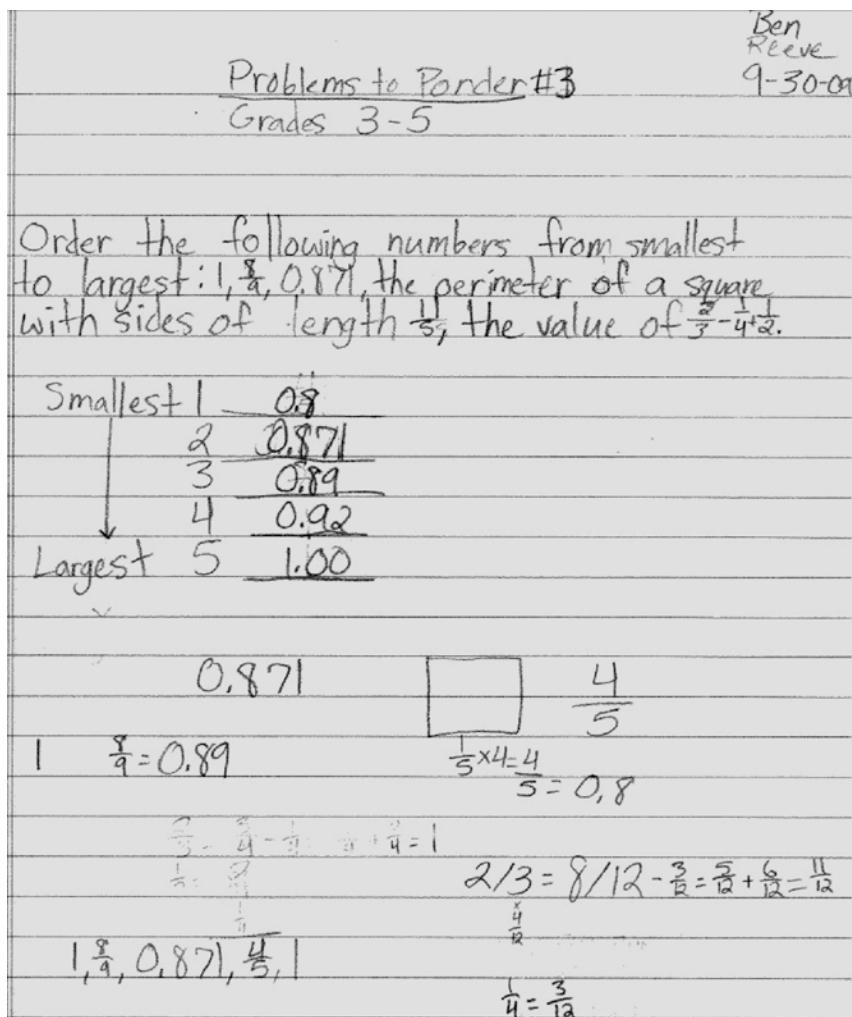 Ben
Reeve
9-30-09
Problems to Ponder #3
Grades 3-5
Order the following numbers from smallest
to largest: 1, 8/9, 0.871, the perimeter of a square
with sides of length 1/5, the value of 2/3 - 1/4 + 1/2.
Smallest 1 0.8
2 0.871
3 0.89
4 0.92
Largest 5 1.00
0.871 4/5
1 8/9 = 0.89 1/5 x 4 = 4/5 = 0.8
2/3 = 8/12 - 3/12 = 5/12 + 6/12 = 11/12
1, 8/9, 0.871, 4/5, 1
1/4 = 3/12